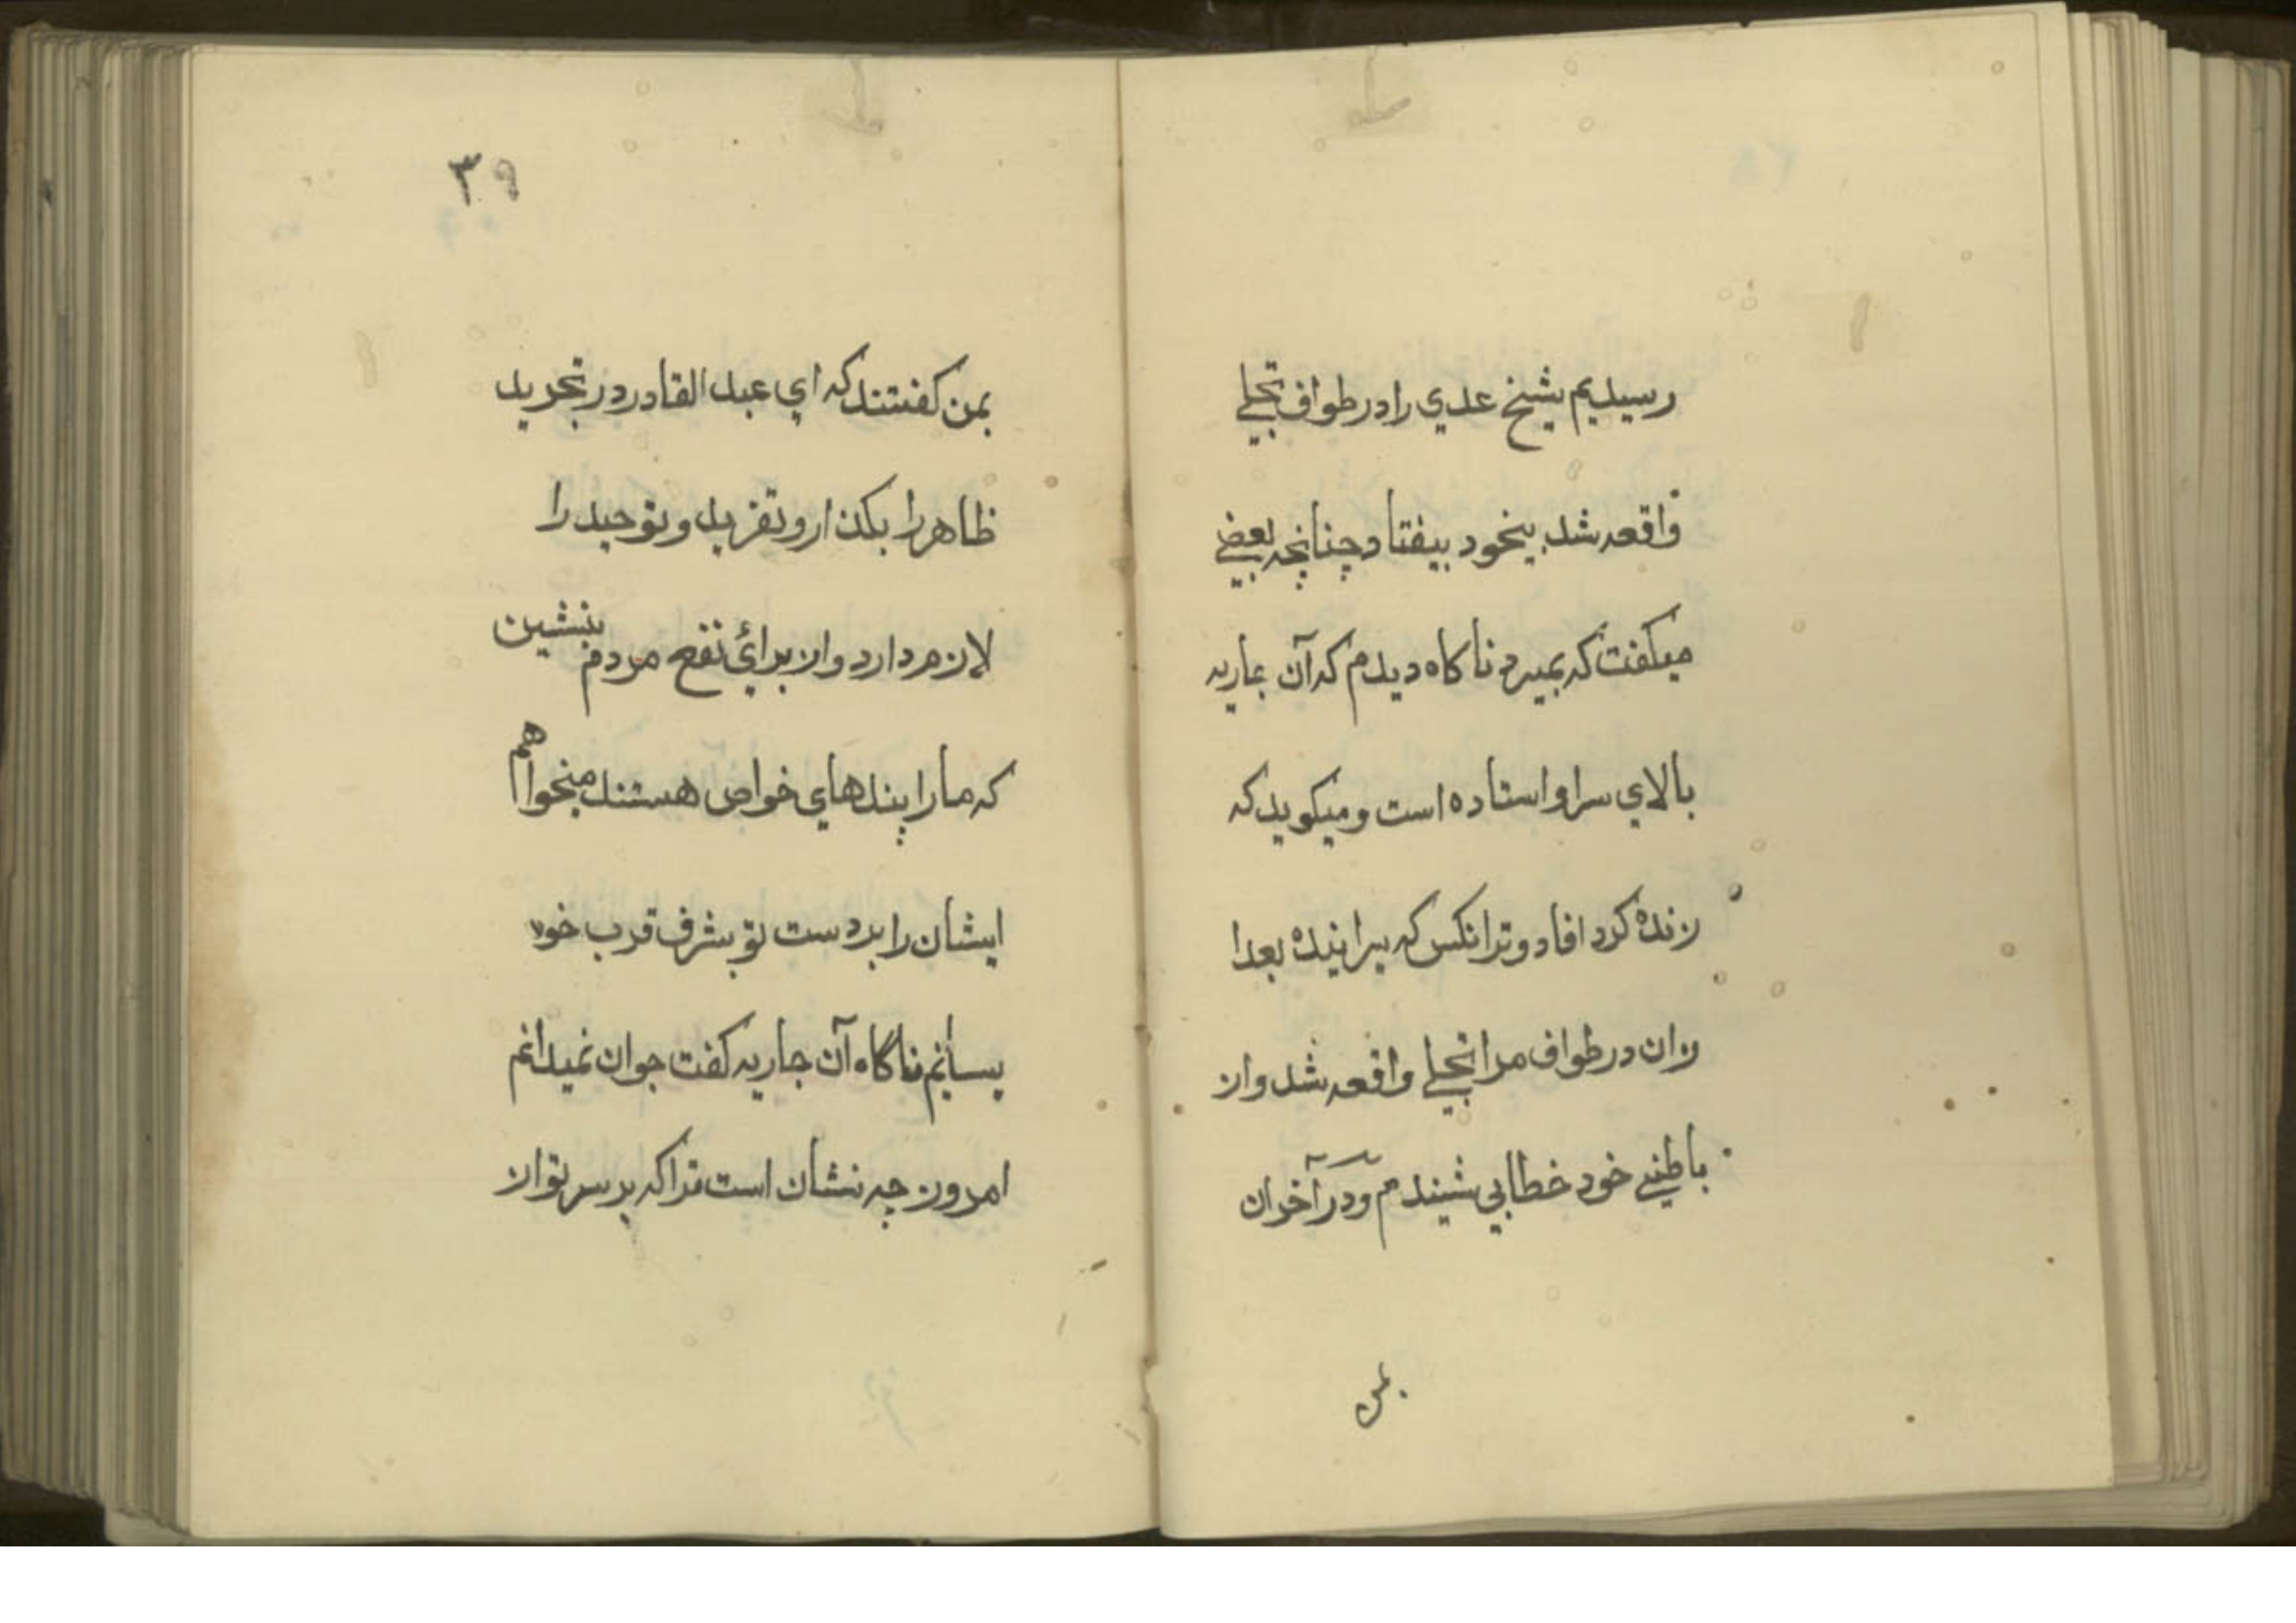 رسیدیم شیخ عدي را در طواف تجلي
واقعه شد بیخود بیفتاد چنانچه بعضي
میکفت که بمیرد ناکاه دیدم که آن جاریه
بالاي سر او استاده است و میکوید که
زنده کرد افاد و ترانکس که بیرانیده بعدا
زان در طواف مرا تجلي واقعه شد و از
باطني خود خطابي شیندم و در آخر ان
بمن
٣٩
بمن کفتند که اي عبد القادر در تجرید
ظاهر را بکذار و تفرید و توحید را
لازم دارد و از برائ نفع مردم بنشین
که ما را بندهاي خواص هستند میخواهم
ایشان را بر دست تو بشرف قرب خود
برسانم ناگاه آن جاریه کفت جوان نمیدانم
امروز چه نشان است ترا که بر سر تو از